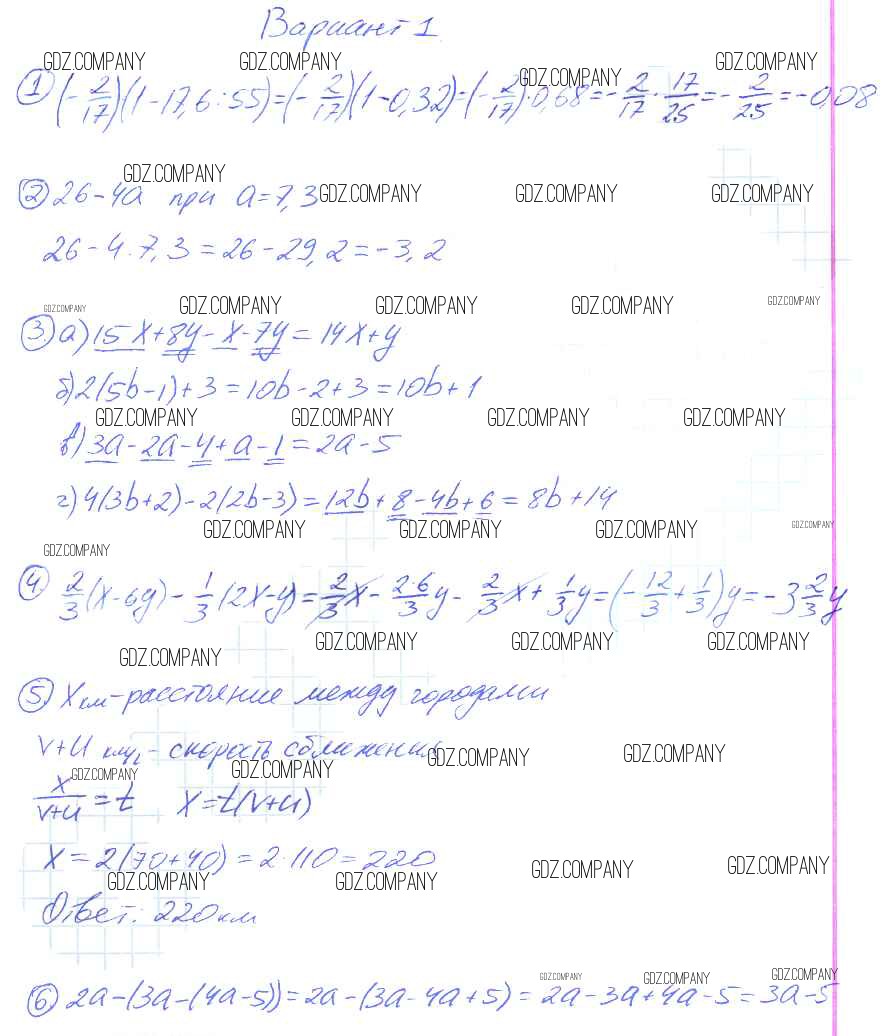 Вариант 1
GDZ.COMPANY GDZ.COMPANY GDZ.COMPANY GDZ.COMPANY
① (-2/17)(1-17,6:55)=(-2/17)(1-0,32)=(-2/17)·0,68=-2/17·17/25=-2/25=-0,08
GDZ.COMPANY
② 26-4a при a=7,3 GDZ.COMPANY GDZ.COMPANY GDZ.COMPANY
26-4·7,3=26-29,2=-3,2
GDZ.COMPANY GDZ.COMPANY GDZ.COMPANY GDZ.COMPANY GDZ.COMPANY
③ а) 15x+8y-x-7y=14x+y
б) 2(5b-1)+3=10b-2+3=10b+1
GDZ.COMPANY GDZ.COMPANY GDZ.COMPANY GDZ.COMPANY
в) 3a-2a-4+a-1=2a-5
г) 4(3b+2)-2(2b-3)=12b+8-4b+6=8b+14
GDZ.COMPANY GDZ.COMPANY GDZ.COMPANY GDZ.COMPANY
GDZ.COMPANY
④ 2/3(x-6y)-1/3(2x-y)=2/3x-2·6/3y-2/3x+1/3y=(-12/3+1/3)y=-3 2/3y
GDZ.COMPANY GDZ.COMPANY GDZ.COMPANY GDZ.COMPANY
⑤ x км-расстояние между городами
v+u км/ч - скорость сближения GDZ.COMPANY GDZ.COMPANY
GDZ.COMPANY GDZ.COMPANY
x/(v+u)=t x=t(v+u)
x=2(70+40)=2·110=220
GDZ.COMPANY GDZ.COMPANY GDZ.COMPANY GDZ.COMPANY
Ответ: 220км
GDZ.COMPANY GDZ.COMPANY GDZ.COMPANY
⑥ 2a-(3a-(4a-5))=2a-(3a-4a+5)=2a-3a+4a-5=3a-5